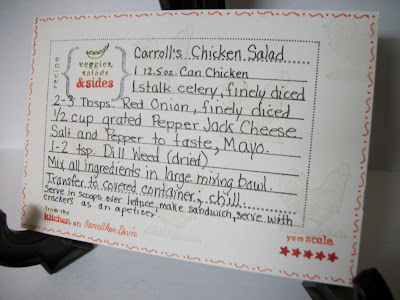 recipe
veggies,
salads
& sides
Carroll's Chicken Salad
1 12.5oz. Can Chicken
1 stalk celery, finely diced
2-3 Tbsps. Red Onion, finely diced
1/2 cup grated Pepper Jack Cheese
Salt and Pepper to taste, Mayo.
1-2 tsp. Dill Weed (dried)
Mix all ingredients in large mixing bowl.
Transfer to covered container; chill.
Serve in scoops over lettuce, make sandwich, serve with
crackers as an apetizer.
from the
kitchen of: Carroll Ann Davis
yum scale